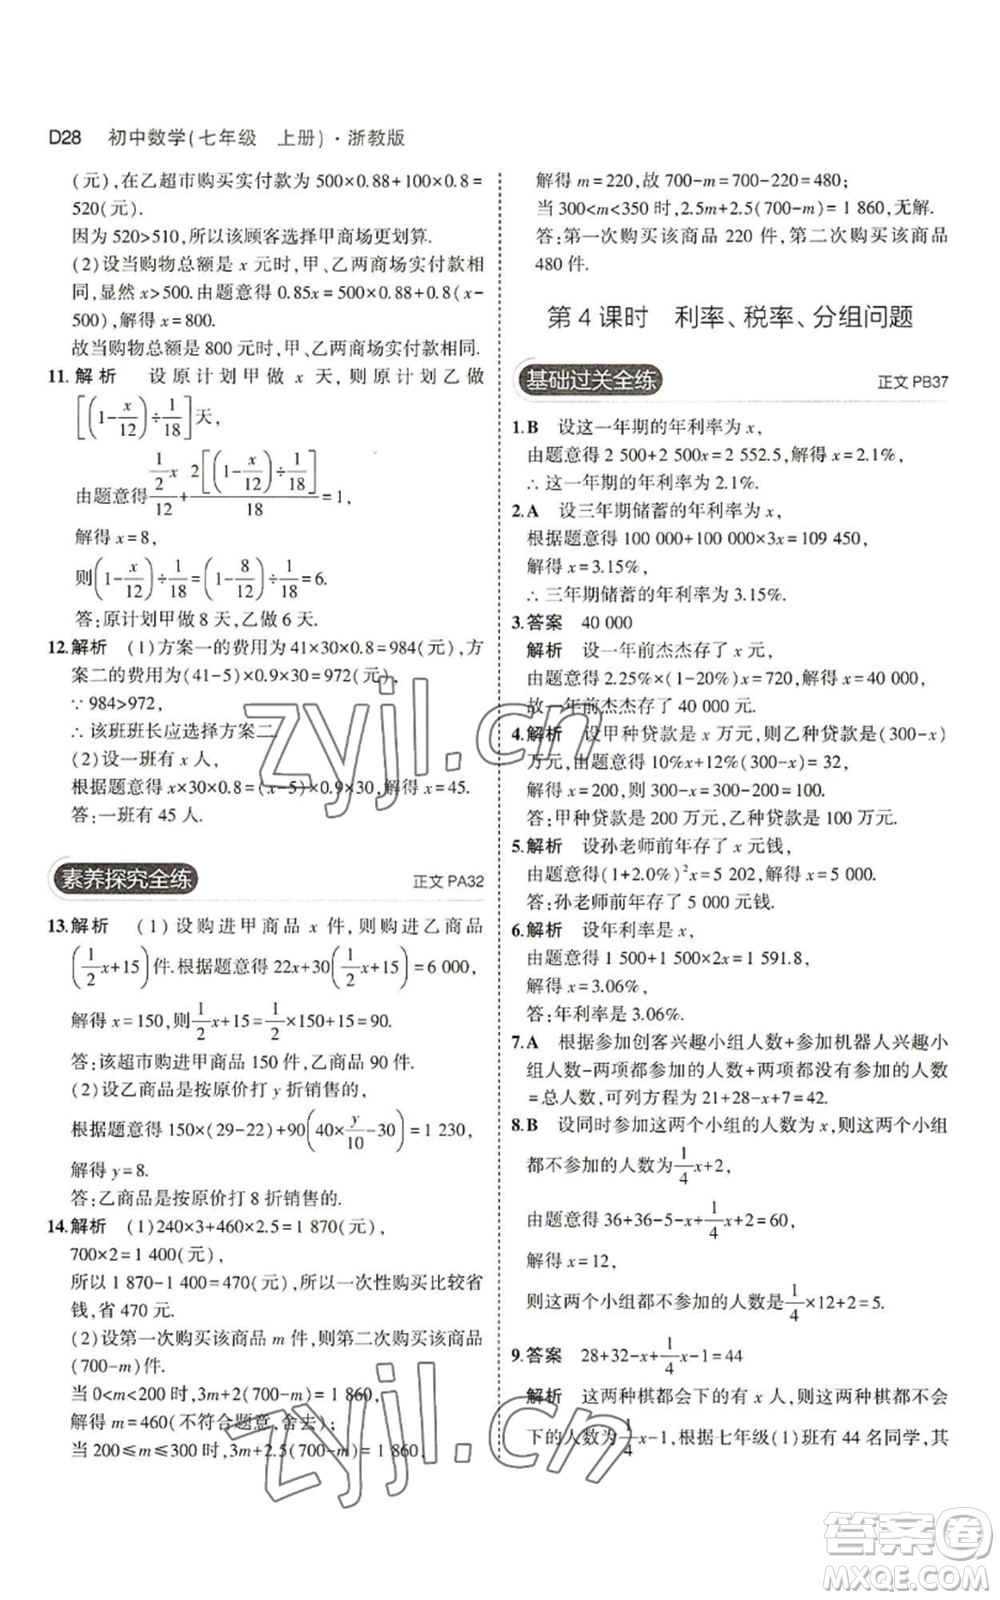 D28 初中数学(七年级 上册)·浙教版
(元),在乙超市购买实付款为 500×0.88+100×0.8=
520(元).
因为 520>510,所以该顾客选择甲商场更划算.
(2)设当购物总额是 x 元时,甲、乙两商场实付款相
同,显然 x>500.由题意得 0.85x=500×0.88+0.8(x-
500),解得 x=800.
故当购物总额是 800 元时,甲、乙两商场实付款相同.
11.解析 设原计划甲做 x 天,则原计划乙做
[(1-x/12)÷1/18]天,
由题意得 (1/2 x)/12+(2[(1-x/12)÷1/18])/18=1,
解得 x=8,
则(1-x/12)÷1/18=(1-8/12)÷1/18=6.
答:原计划甲做 8 天,乙做 6 天.
12.解析 (1)方案一的费用为 41×30×0.8=984(元),方
案二的费用为(41-5)×0.9×30=972(元),
∵ 984>972,
∴ 该班班长应选择方案二.
(2)设一班有 x 人,
根据题意得 x×30×0.8=(x-5)×0.9×30,解得 x=45.
答:一班有 45 人.
素养探究全练 正文 PA32
13.解析 (1)设购进甲商品 x 件,则购进乙商品
(1/2 x+15)件.根据题意得 22x+30(1/2 x+15)=6 000,
解得 x=150,则1/2 x+15=1/2×150+15=90.
答:该超市购进甲商品 150 件,乙商品 90 件.
(2)设乙商品是按原价打 y 折销售的,
根据题意得 150×(29-22)+90(40×y/10-30)=1 230,
解得 y=8.
答:乙商品是按原价打 8 折销售的.
14.解析 (1)240×3+460×2.5=1 870(元),
700×2=1 400(元),
所以 1 870-1 400=470(元),所以一次性购买比较省
钱,省 470 元.
(2)设第一次购买该商品 m 件,则第二次购买该商品
(700-m)件.
当 0<m<200 时,3m+2(700-m)=1 860,
解得 m=460(不符合题意,舍去);
当 200≤m≤300 时,3m+2.5(700-m)=1 860,
解得 m=220,故 700-m=700-220=480;
当 300<m<350 时,2.5m+2.5(700-m)=1 860,无解.
答:第一次购买该商品 220 件,第二次购买该商品
480 件.
第 4 课时 利率、税率、分组问题
基础过关全练 正文 PB37
1.B 设这一年期的年利率为 x,
由题意得 2 500+2 500x=2 552.5,解得 x=2.1%,
∴ 这一年期的年利率为 2.1%.
2.A 设三年期储蓄的年利率为 x,
根据题意得 100 000+100 000×3x=109 450,
解得 x=3.15%,
∴ 三年期储蓄的年利率为 3.15%.
3.答案 40 000
解析 设一年前杰杰存了 x 元,
由题意得 2.25%×(1-20%)x=720,解得 x=40 000,
故一年前杰杰存了 40 000 元.
4.解析 设甲种贷款是 x 万元,则乙种贷款是(300-x)
万元,由题意得 10%x+12%(300-x)=32,
解得 x=200,则 300-x=300-200=100.
答:甲种贷款是 200 万元,乙种贷款是 100 万元.
5.解析 设孙老师前年存了 x 元钱,
由题意得(1+2.0%)²x=5 202,解得 x=5 000.
答:孙老师前年存了 5 000 元钱.
6.解析 设年利率是 x,
由题意得 1 500+1 500×2x=1 591.8,
解得 x=3.06%,
答:年利率是 3.06%.
7.A 根据参加创客兴趣小组人数+参加机器人兴趣小
组人数-两项都参加的人数+两项都没有参加的人数
=总人数,可列方程为 21+28-x+7=42.
8.B 设同时参加这两个小组的人数为 x,则这两个小组
都不参加的人数为1/4 x+2,
由题意得 36+36-5-x+1/4 x+2=60,
解得 x=12,
则这两个小组都不参加的人数是1/4×12+2=5.
9.答案 28+32-x+1/4 x-1=44
解析 这两种棋都会下的有 x 人,则这两种棋都不会
下的人数为1/4 x-1,根据七年级(1)班有 44 名同学,其
zyjl.cn
zyjl.cn
答案圈
MXQE.COM